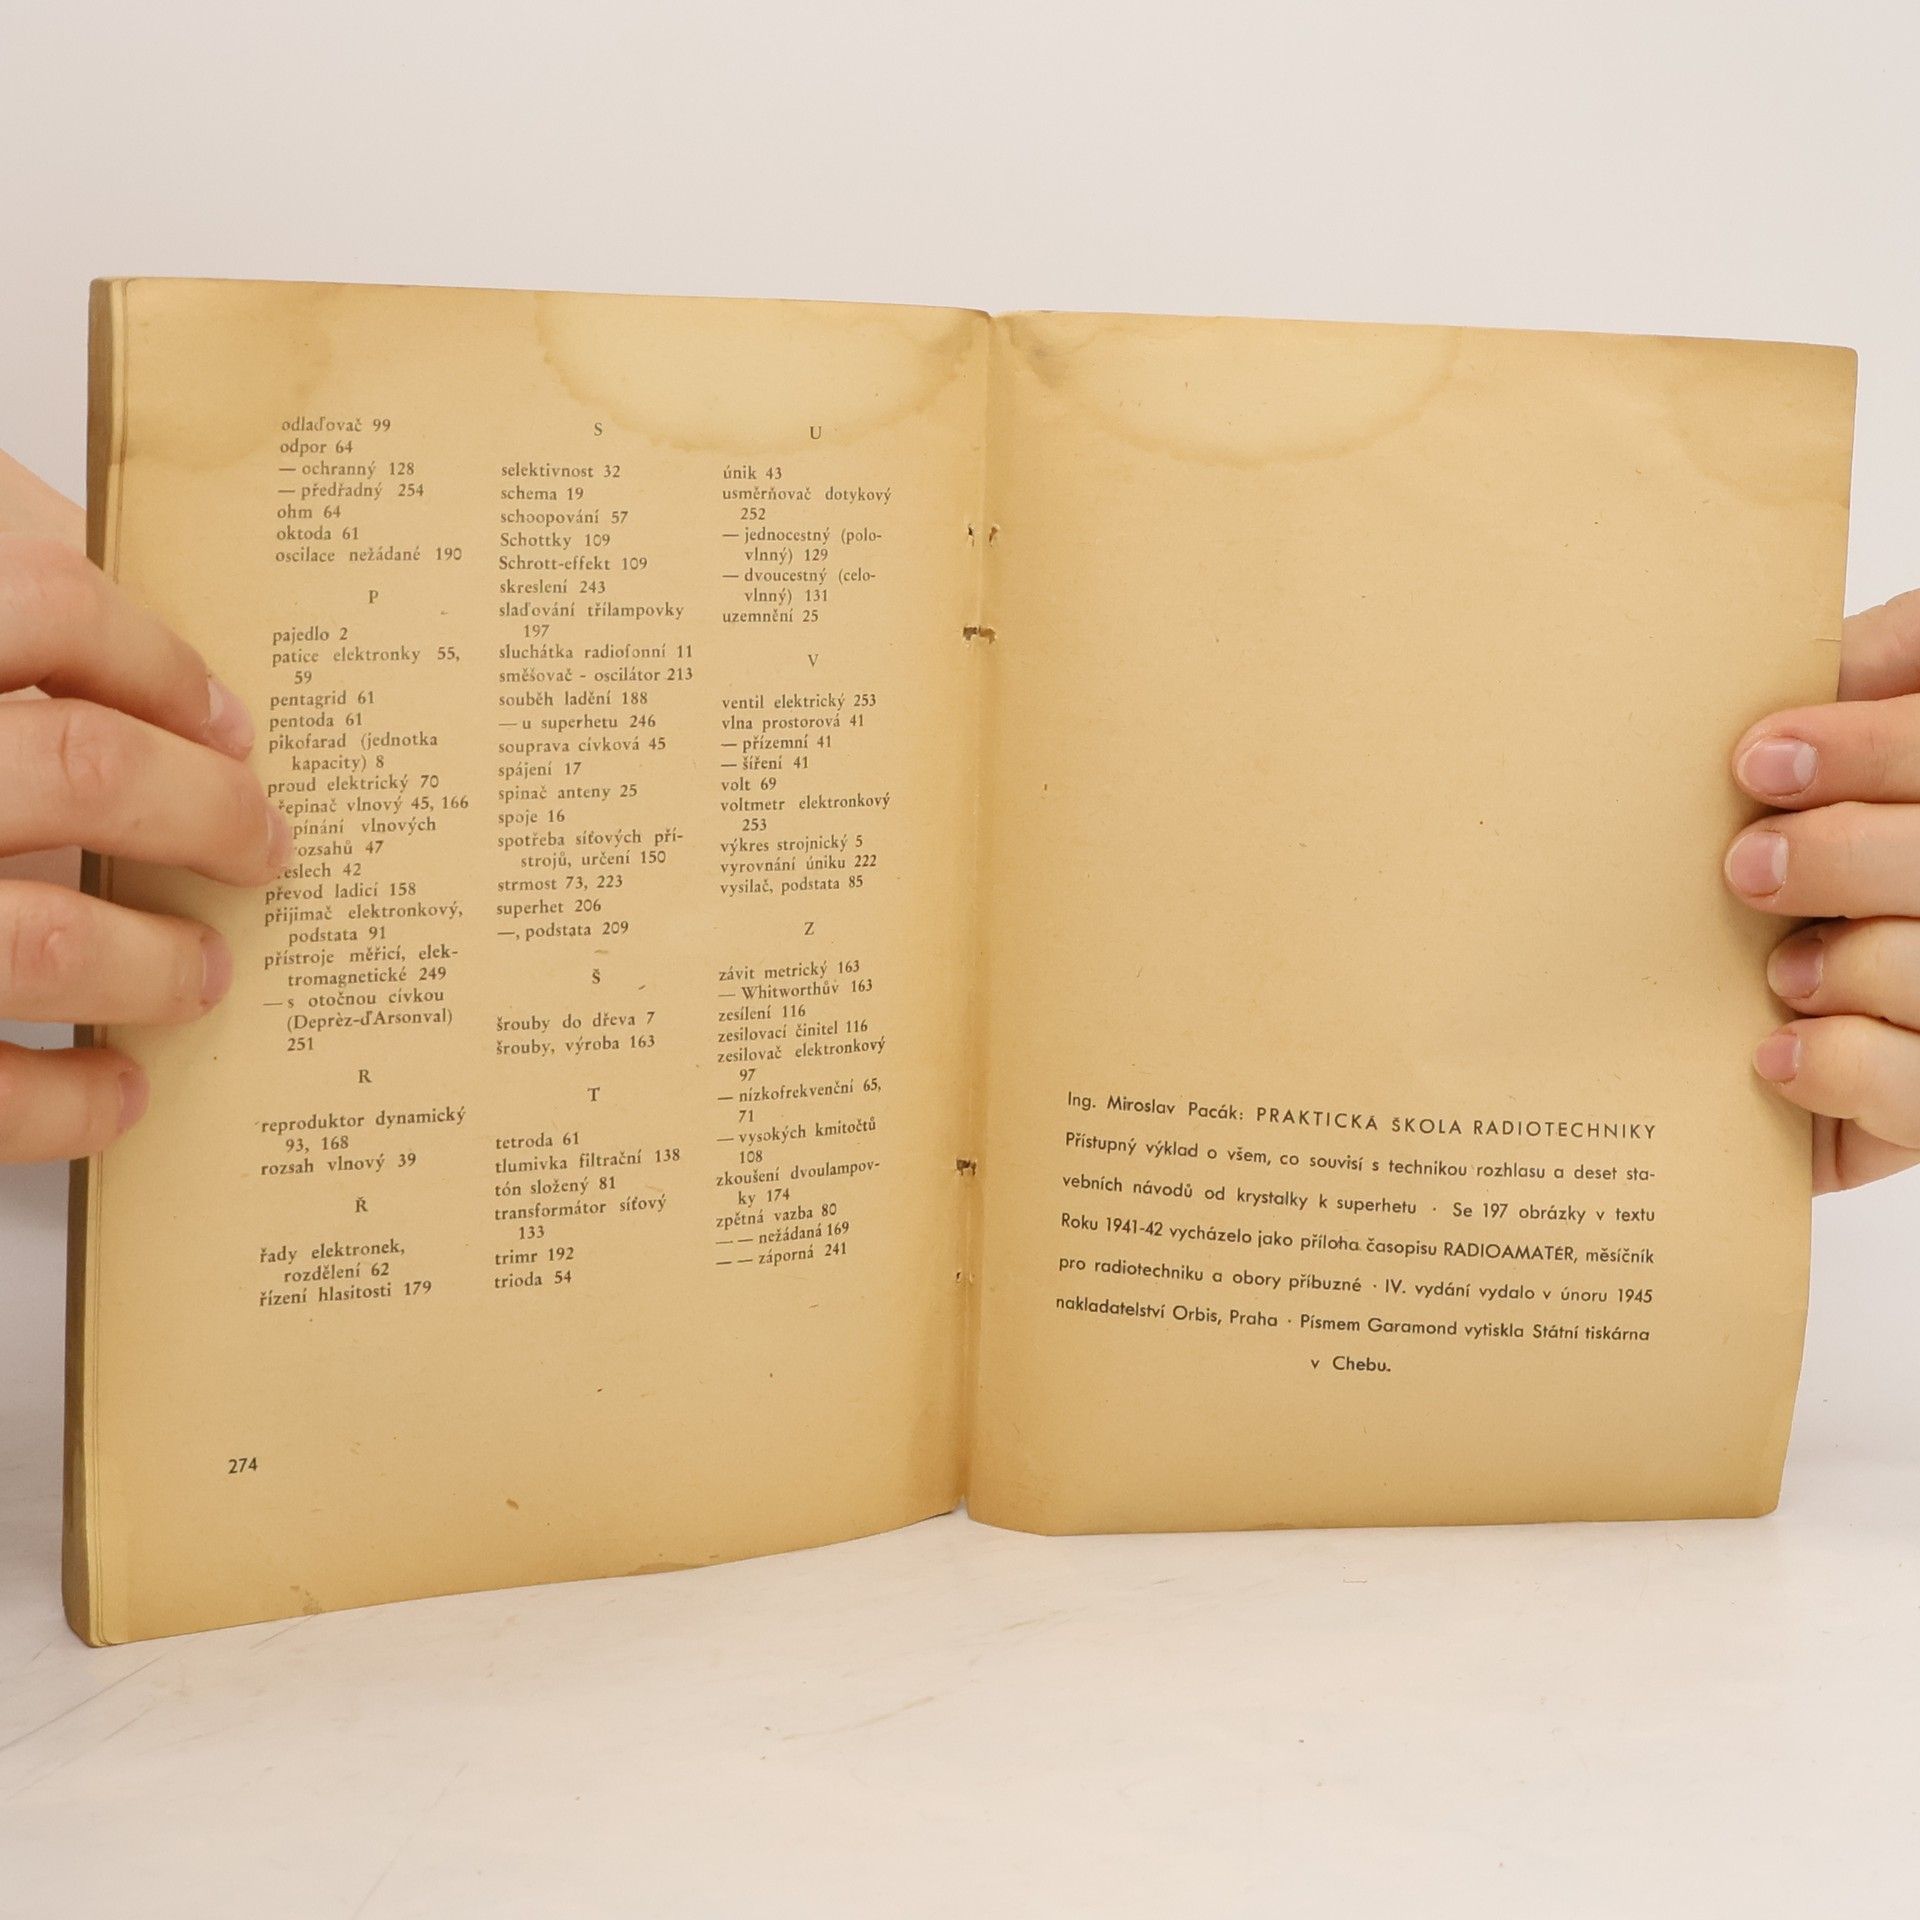 odlaďovač 99
odpor 64
— ochranný 128
— předřadný 254
ohm 64
oktoda 61
oscilace nežádané 190
P
pajedlo 2
patice elektronky 55,
59
pentagrid 61
pentoda 61
pikofarad (jednotka
kapacity) 8
proud elektrický 70
vlnový 45, 166
vlnových
rozsahů 47
42
převod ladicí 158
přijimač elektronkový,
podstata 91
přístroje měřicí, elek-
tromagnetické 249
— s otočnou cívkou
(Deprèz-d'Arsonval)
251
R
reproduktor dynamický
93, 168
rozsah vlnový 39
Ř
řady elektronek,
rozdělení 62
řízení hlasitosti 179
274
S
selektivnost 32
schema 19
schoopování 57
Schottky 109
Schrott-effekt 109
skreslení 243
slaďování třílampovky
197
sluchátka radiofonní 11
směšovač - oscilátor 213
souběh ladění 188
— u superhetu 246
souprava cívková 45
spájení 17
spinač anteny 25
spoje 16
spotřeba síťových pří-
strojů, určení 150
strmost 73, 223
superhet 206
—, podstata 209
Š
šrouby do dřeva 7
šrouby, výroba 163
T
tetroda 61
tlumivka filtrační 138
tón složený 81
transformátor síťový
133
trimr 192
trioda 54
U
únik 43
usměrňovač dotykový
252
— jednocestný (polo-
vlnný) 129
— dvoucestný (celo-
vlnný) 131
uzemnění 25
V
ventil elektrický 253
vlna prostorová 41
— přízemní 41
— šíření 41
volt 69
voltmetr elektronkový
253
výkres strojnický 5
vyrovnání úniku 222
vysilač, podstata 85
Z
závit metrický 163
— Whitworthův 163
zesílení 116
zesilovací činitel 116
zesilovač elektronkový
97
— nízkofrekvenční 65,
71
— vysokých kmitočtů
108
zkoušení dvoulampov-
ky 174
zpětná vazba 80
— — nežádaná 169
— — záporná 241
Ing. Miroslav Pacák: PRAKTICKÁ ŠKOLA RADIOTECHNIKY
Přístupný výklad o všem, co souvisí s technikou rozhlasu a deset sta-
vebních návodů od krystalky k superhetu · Se 197 obrázky v textu
Roku 1941-42 vycházelo jako příloha časopisu RADIOAMATÉR, měsíčník
pro radiotechniku a obory příbuzné · IV. vydání vydalo v únoru 1945
nakladatelství Orbis, Praha · Písmem Garamond vytiskla Státní tiskárna
v Chebu.